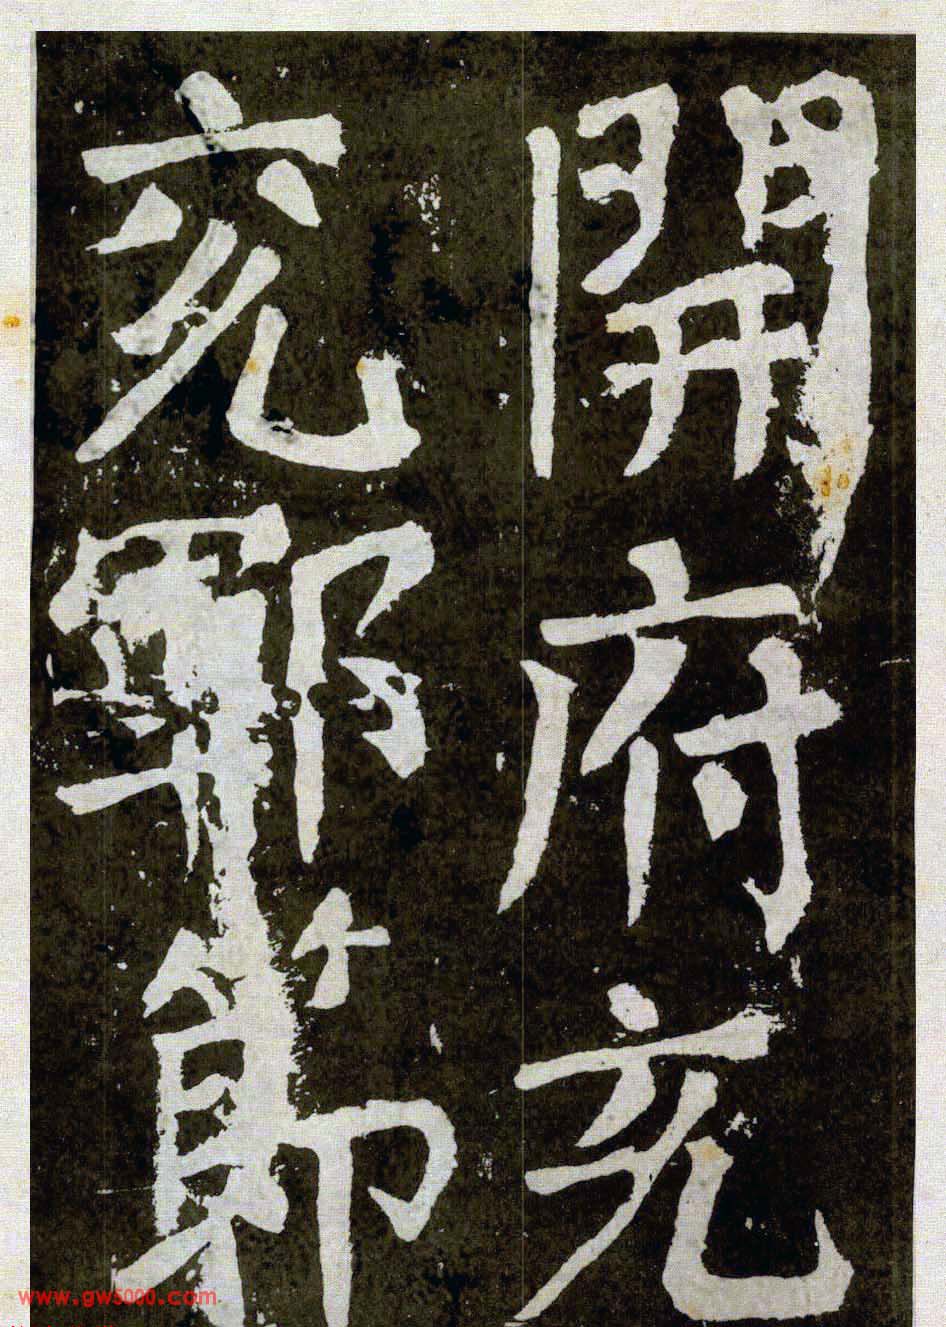 開府充
兗鄆節
www.gw5000.com